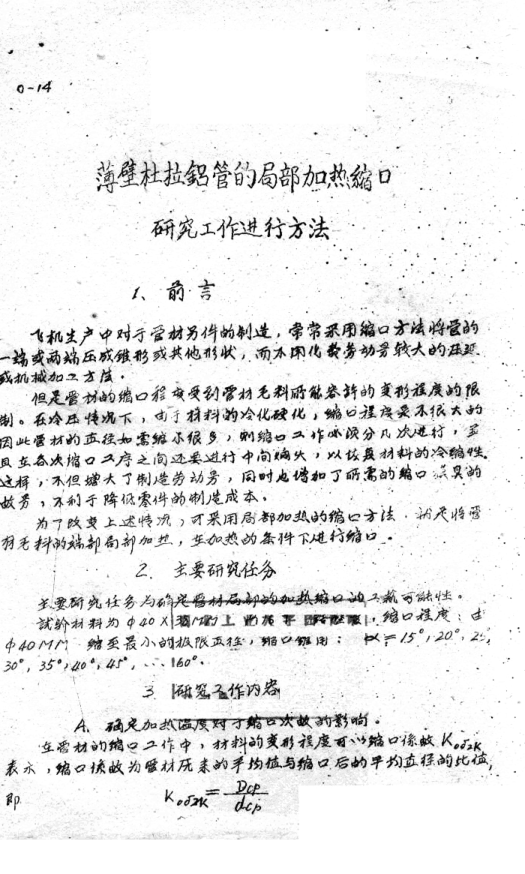 0-14
薄壁杜拉鋁管的局部加热縮口
研究工作进行方法
1、前言
飞机生产中对于管材另件的制造，常常采用縮口方法将管的
一端或两端压成锥形或其他形状，而不用化费劳动劳较大的压延
或机械加工方法。
但是管材的縮口程度受到管材毛料所能容許的变形程度的限
制。在冷压情况下，由于材料的冷化硬化，縮口程度是不很大的
因此管材的直径如需縮小很多，則縮口工作必須分几次进行，並
且在各次縮口工序之间还要进行中间焖火，以恢复材料的冷縮性
这样，不但增大了制造劳动劳，同时也增加了所需的縮口 具的
数劳，不利于降低零件的制造成本。
为了改变上述情况，可采用局部加热的縮口方法 就是将管
材毛料的端部局部加热，在加热的条件下进行縮口。
2. 主要研究任务
主要研究任务为确定管材局部的加热縮口的工藝可能性。
試驗材料为φ40×，縮口程度：由
φ40MM 縮至最小的极限直径，縮口錐角：α=15°，20°，25，
30°，35°，40°，45°，…160°.
3 研究工作内容
A. 确定加热温度对于縮口次数的影响。
在管材的縮口工作中，材料的变形程度可以縮口係数 Kобжк
表示，縮口係数为管材原来的平均值与縮口后的平均直径的比值，
即 Kобжк = Dcp / dcp